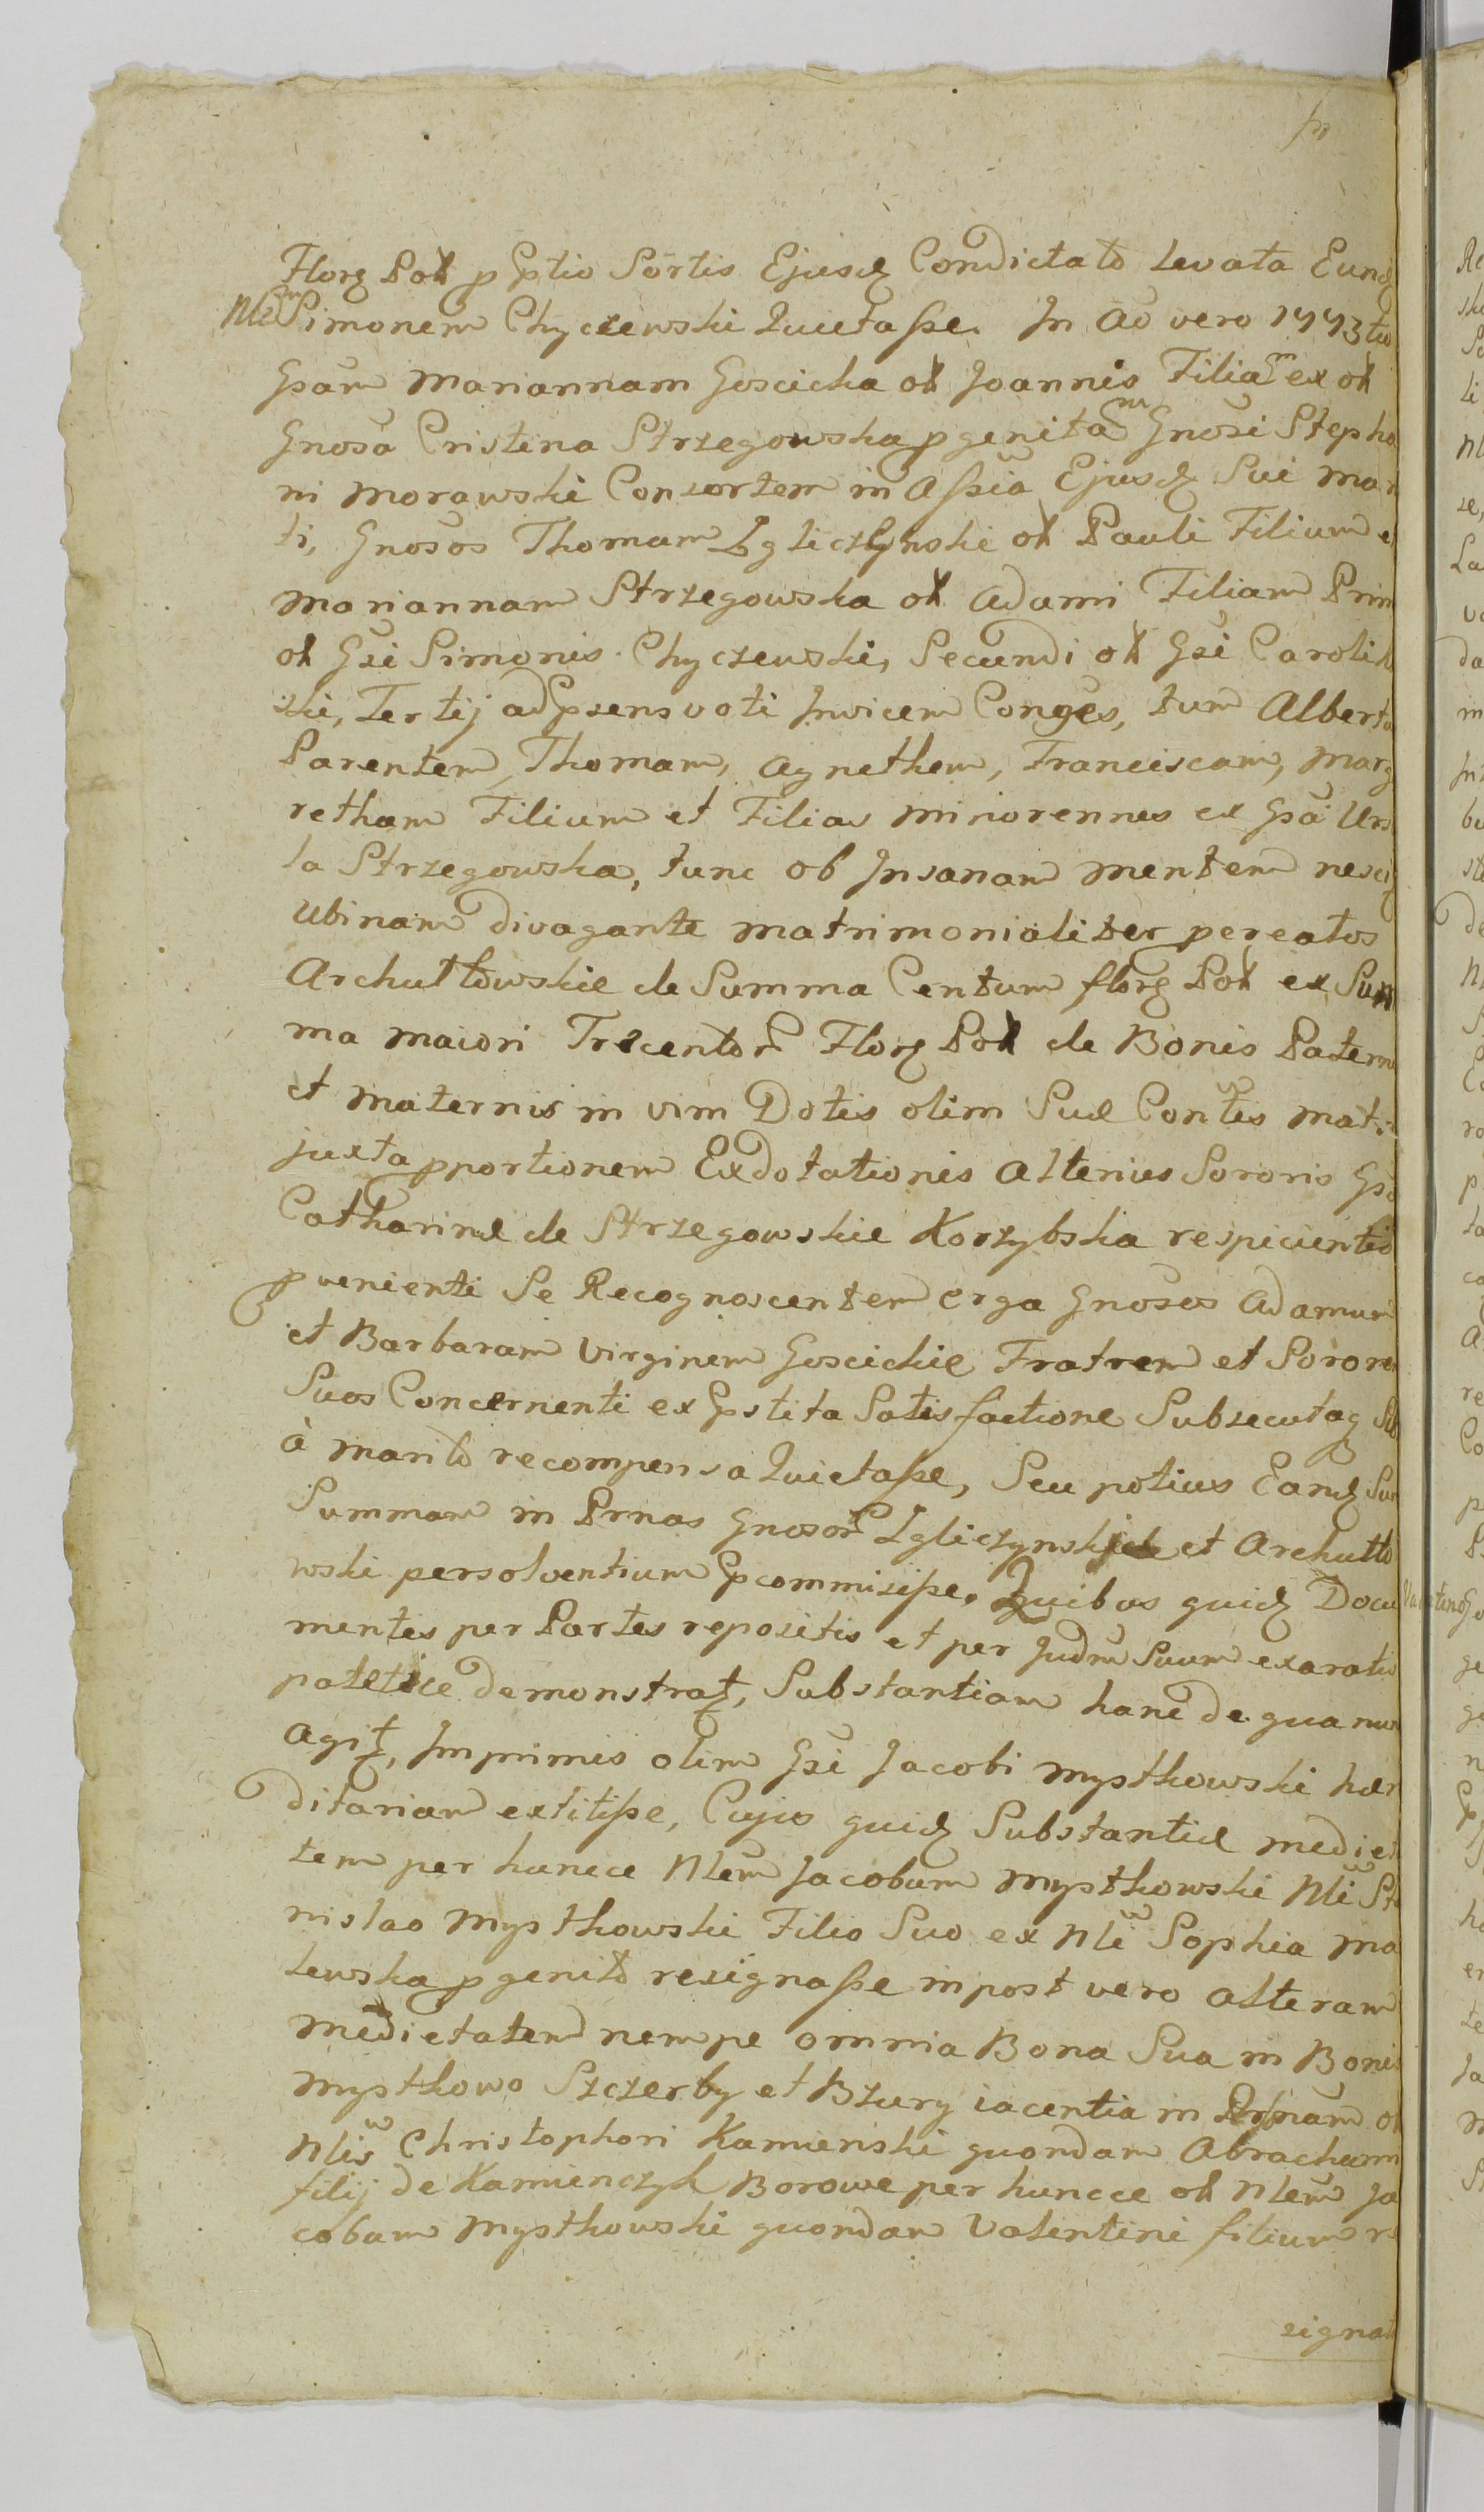 Florꝫ Pol p Prtio Sortis Ejusdꝫ Condictato Levata Eundꝫ
Nlem Simonem Chyczewski Quietasse. In Ao vero 1773tio
Gsam Mariannam Goscicka ol Joannis Filiam ex ol
Gnosa Cristina Strzegowska pgenitam Gnosi Stepha
ni Morawski Consortem in Assia Ejusdꝫ Sui Mari
ti, Gnosos Thomam Igliczynski ol Pauli Filium e
Mariannam Strzegowska ol Adami Filiam Prim
ol Gsi Simonis Chyczewski, Secundi ol Gsi Caroli
ski, Tertij ad Psens voti Invicem Conges, tum Albert
Parentem, Thomam, Agnethem, Franciscam, Marg
retham Filium et Filias minorennes ex Gsa Urs
la Strzegowska, tunc ob Insanam mentem nesci
ubinam divagante matrimonialiter pcreatos
Archuttowskie de Summa Centum florꝫ Pol ex Sum
ma maiori Trecentor Florꝫ Pol de Bonis Patern
et Maternis in vim Dotis olim Suæ Contis Mat
juxta pportionem Exdotationis alterius Sororis Gsæ
Catharinæ de Strzegowskie Korzybska respicientis
pvenienti Se Recognoscentem erga Gnosos Adamum
et Barbaram Virginem Goscickie Fratrem et Sororem
Suos Concernenti ex Pstita Satisfactione Subsecutaqꝫ Sib
à marito recompensa Quietasse, Seu potius Eandꝫ Su
Summam in Prnas Gnosor Igliczynski et Archutto
wski persolventium Pcommisisse. Quibus quidꝫ Docu
mentis per Partes repositis et per Judm Suum exaratis
patetice demonstrat, Substantiam hanc de qua nun
agit, Imprimis olim Gsi Jacobi Mystkowski hær
ditariam extitisse, Cujus quidꝫ Substantiæ mediet
tem per huncce Nlem Jacobum Mystkowski Nli Sta
nislao Mystkowski Filio Suo ex Nli Sophia Ma
lewska pgenito resignasse inpost vero alteram
Medietatem nempe omnia Bona Sua in Bonis
Mystkowo Szczerby et Bzury iacentia in Prsnam ol
Nlis Christophori Kamienski quondam Abrachami
filij de Kamienczyk Borowe per huncce ol Nlem Ja
cobum Mystkowski quondam Valentini filium re
signat